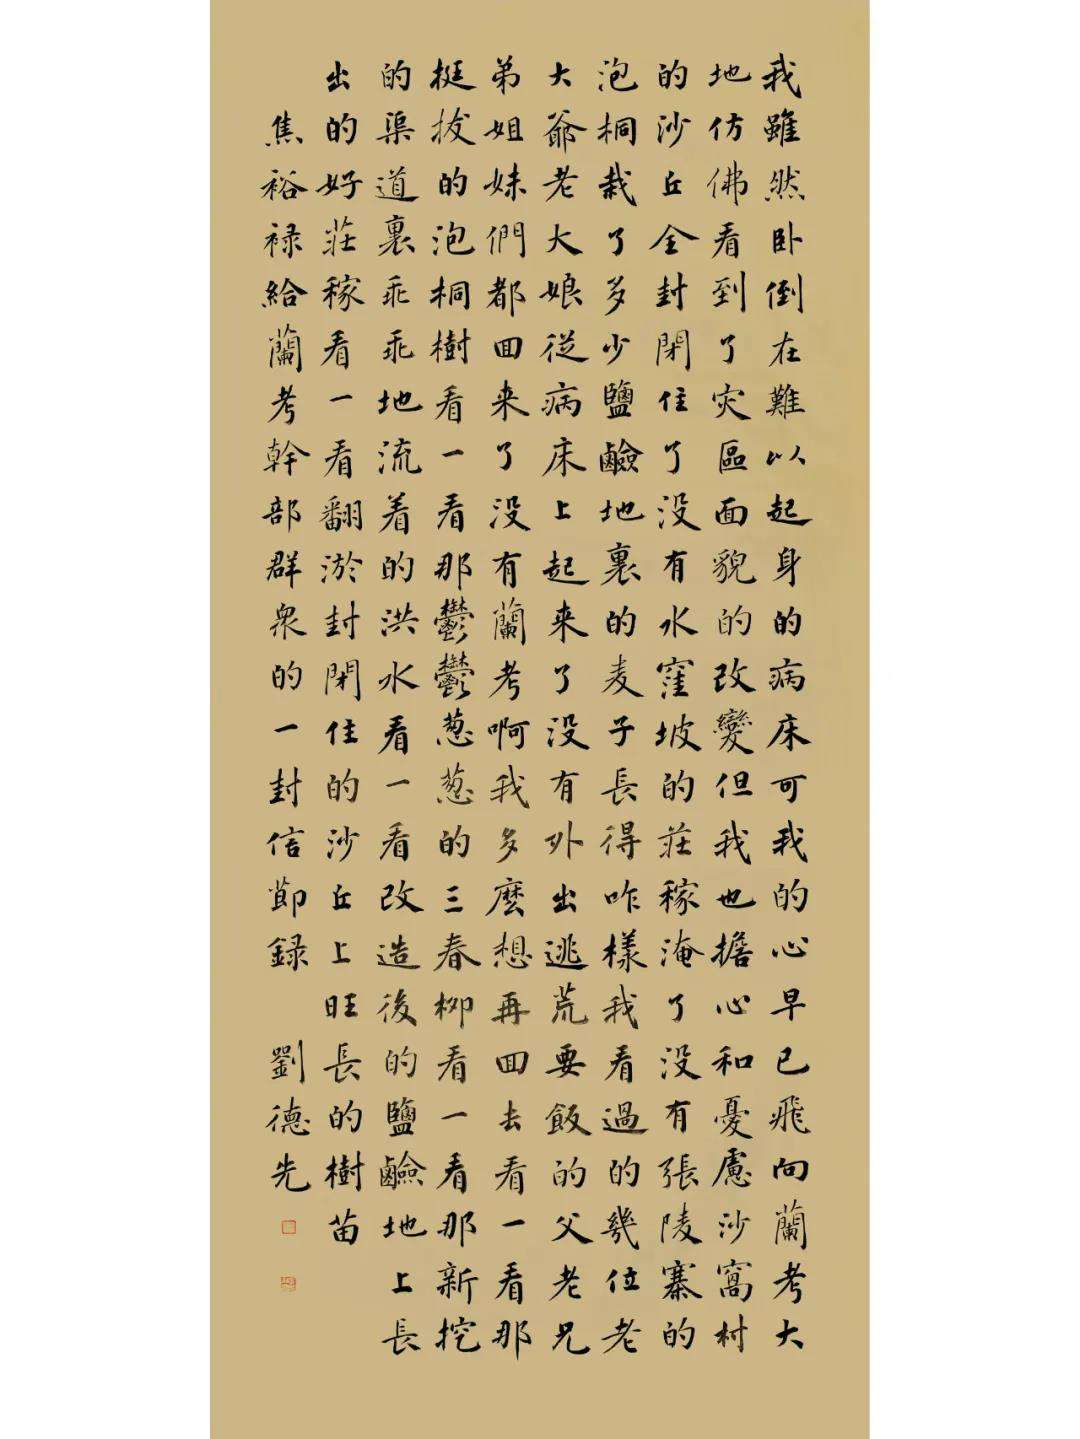 我雖然卧倒在難以起身的病床可我的心早已飛向蘭考大
地仿佛看到了灾區面貌的改變但我也擔心和憂慮沙窩村
的沙丘全封閉住了没有水窪坡的莊稼淹了没有張陵寨的
泡桐栽了多少鹽鹼地裏的麦子長得咋樣我看過的幾位老
大爺老大娘從病床上起来了没有外出逃荒要飯的父老兄
弟姐妹們都回来了没有蘭考啊我多麽想再回去看一看那
挺拔的泡桐樹看一看那鬱鬱葱葱的三春柳看一看那新挖
的渠道裏乖乖地流着的洪水看一看改造後的鹽鹼地上長
出的好莊稼看一看翻淤封閉住的沙丘上旺長的樹苗
焦裕禄給蘭考幹部群衆的一封信節録 劉德先